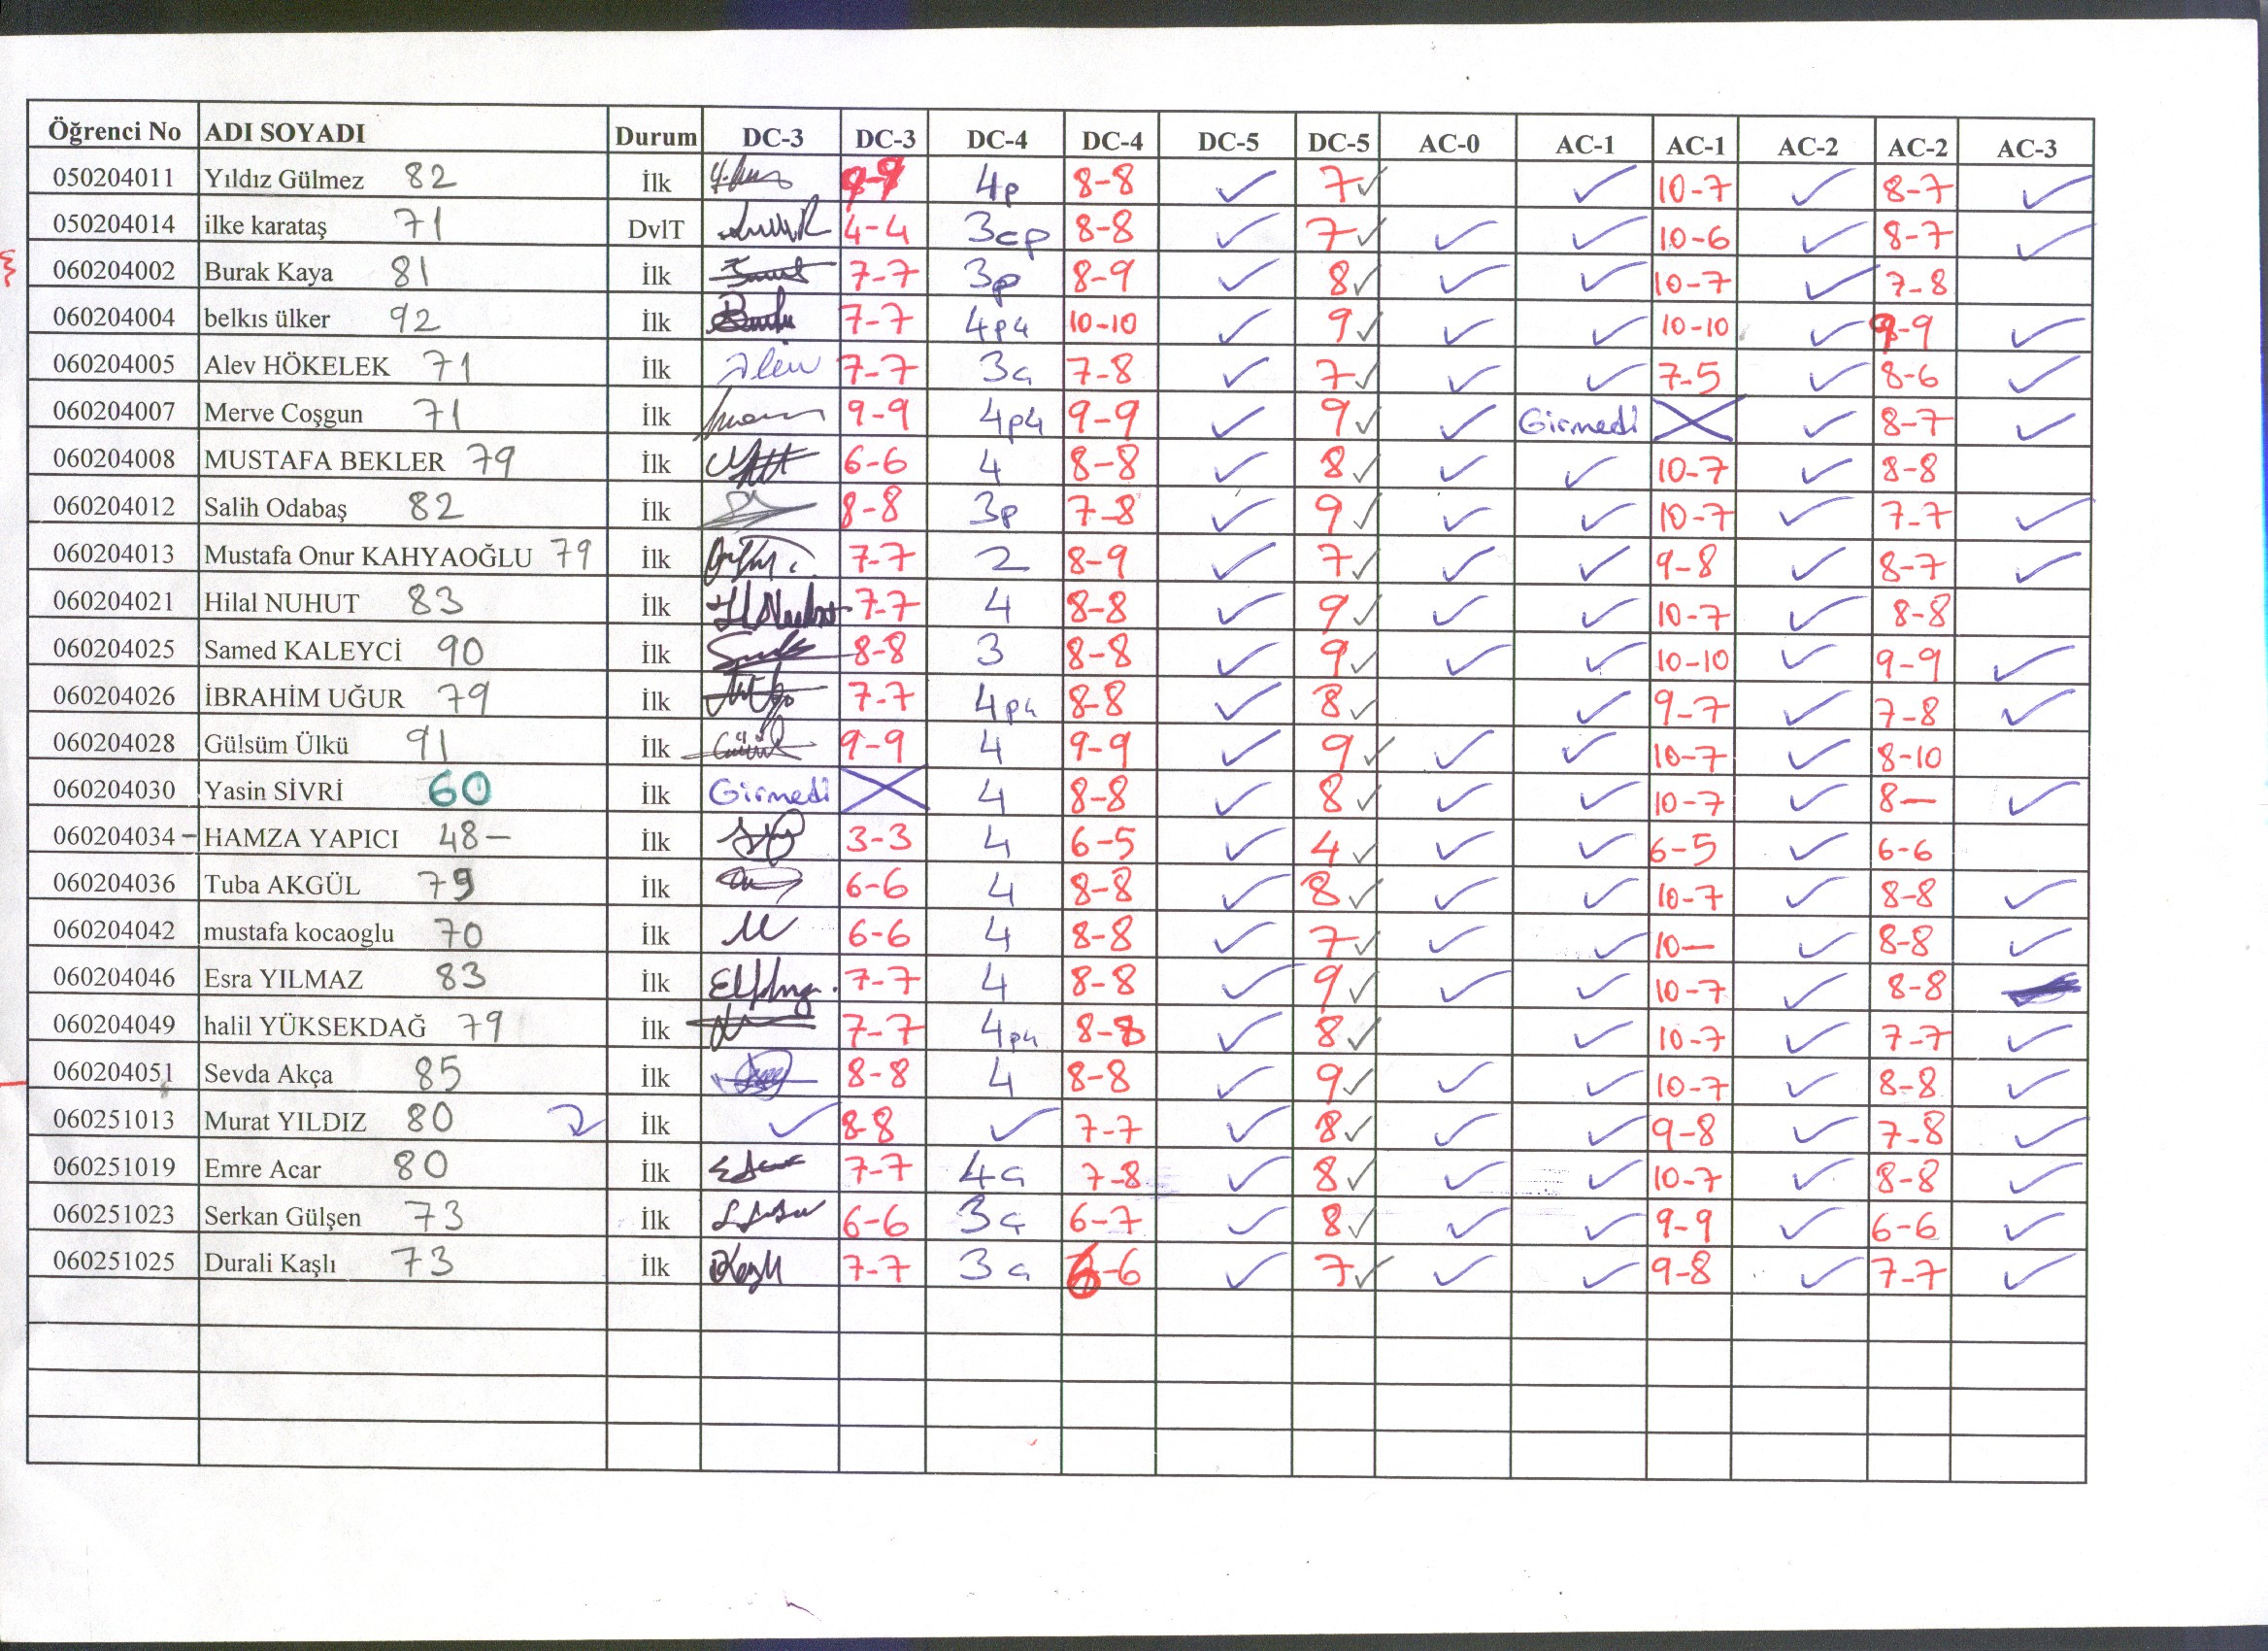 Öğrenci No ADI SOYADI Durum DC-3 DC-3 DC-4 DC-4 DC-5 DC-5 AC-0 AC-1 AC-1 AC-2 AC-2 AC-3
050204011 Yıldız Gülmez 82 İlk 9-9 4p 8-8 ✓ 7✓ ✓ 10-7 ✓ 8-7 ✓
050204014 ilke karataş 71 DvlT 4-4 3cp 8-8 ✓ 7✓ ✓ ✓ 10-6 ✓ 8-7 ✓
060204002 Burak Kaya 81 İlk 7-7 3p 8-9 ✓ 8✓ ✓ ✓ 10-7 ✓ 7-8
060204004 belkıs ülker 92 İlk 7-7 4p4 10-10 ✓ 9✓ ✓ ✓ 10-10 ✓ 9-9 ✓
060204005 Alev HÖKELEK 71 İlk Alev 7-7 3a 7-8 ✓ 7✓ ✓ ✓ 7-5 ✓ 8-6 ✓
060204007 Merve Coşgun 71 İlk 9-9 4p4 9-9 ✓ 9✓ ✓ Girmedi ✓ 8-7 ✓
060204008 MUSTAFA BEKLER 79 İlk 6-6 4 8-8 ✓ 8✓ ✓ ✓ 10-7 ✓ 8-8
060204012 Salih Odabaş 82 İlk 8-8 3p 7-8 ✓ 9✓ ✓ ✓ 10-7 ✓ 7-7 ✓
060204013 Mustafa Onur KAHYAOĞLU 79 İlk 7-7 2 8-9 ✓ 7✓ ✓ ✓ 9-8 ✓ 8-7 ✓
060204021 Hilal NUHUT 83 İlk 7-7 4 8-8 ✓ 9✓ ✓ ✓ 10-7 ✓ 8-8
060204025 Samed KALEYCİ 90 İlk 8-8 3 8-8 ✓ 9✓ ✓ ✓ 10-10 ✓ 9-9 ✓
060204026 İBRAHİM UĞUR 79 İlk 7-7 4p4 8-8 ✓ 8✓ ✓ 9-7 ✓ 7-8 ✓
060204028 Gülsüm Ülkü 91 İlk 9-9 4 9-9 ✓ 9✓ ✓ ✓ 10-7 ✓ 8-10
060204030 Yasin SİVRİ 60 İlk Girmedi 4 8-8 ✓ 8✓ ✓ ✓ 10-7 ✓ 8— ✓
060204034 - HAMZA YAPICI 48— İlk 3-3 4 6-5 ✓ 4✓ ✓ ✓ 6-5 ✓ 6-6
060204036 Tuba AKGÜL 79 İlk 6-6 4 8-8 ✓ 8✓ ✓ ✓ 10-7 ✓ 8-8 ✓
060204042 mustafa kocaoglu 70 İlk 6-6 4 8-8 ✓ 7✓ ✓ ✓ 10— ✓ 8-8 ✓
060204046 Esra YILMAZ 83 İlk 7-7 4 8-8 ✓ 9✓ ✓ ✓ 10-7 ✓ 8-8
060204049 halil YÜKSEKDAĞ 79 İlk 7-7 4p4 8-8 ✓ 8✓ ✓ 10-7 ✓ 7-7 ✓
060204051 Sevda Akça 85 İlk 8-8 4 8-8 ✓ 9✓ ✓ ✓ 10-7 ✓ 8-8 ✓
060251013 Murat YILDIZ 80 İlk ✓ 8-8 ✓ 7-7 ✓ 8✓ ✓ ✓ 9-8 ✓ 7-8 ✓
060251019 Emre Acar 80 İlk 7-7 4a 7-8 ✓ 8✓ ✓ ✓ 10-7 ✓ 8-8 ✓
060251023 Serkan Gülşen 73 İlk 6-6 3a 6-7 ✓ 8✓ ✓ ✓ 9-9 ✓ 6-6 ✓
060251025 Durali Kaşlı 73 İlk 7-7 3a 6-6 ✓ 7✓ ✓ ✓ 9-8 ✓ 7-7 ✓